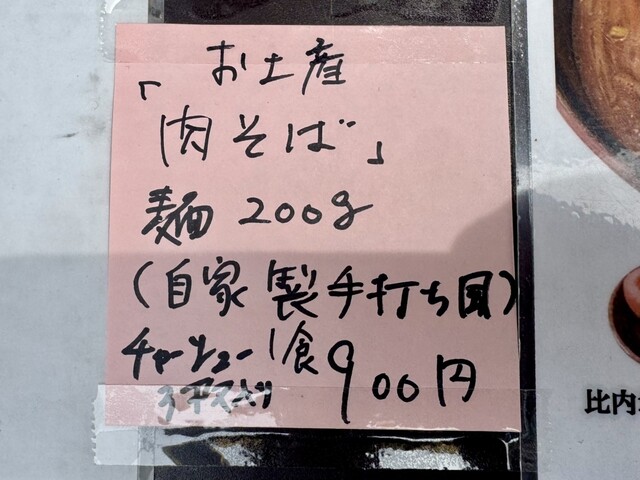 お土産
「肉そば」
麺 200g
(自家製手打ち風)
チャーシュー 1食 900円
3コ入り
比内